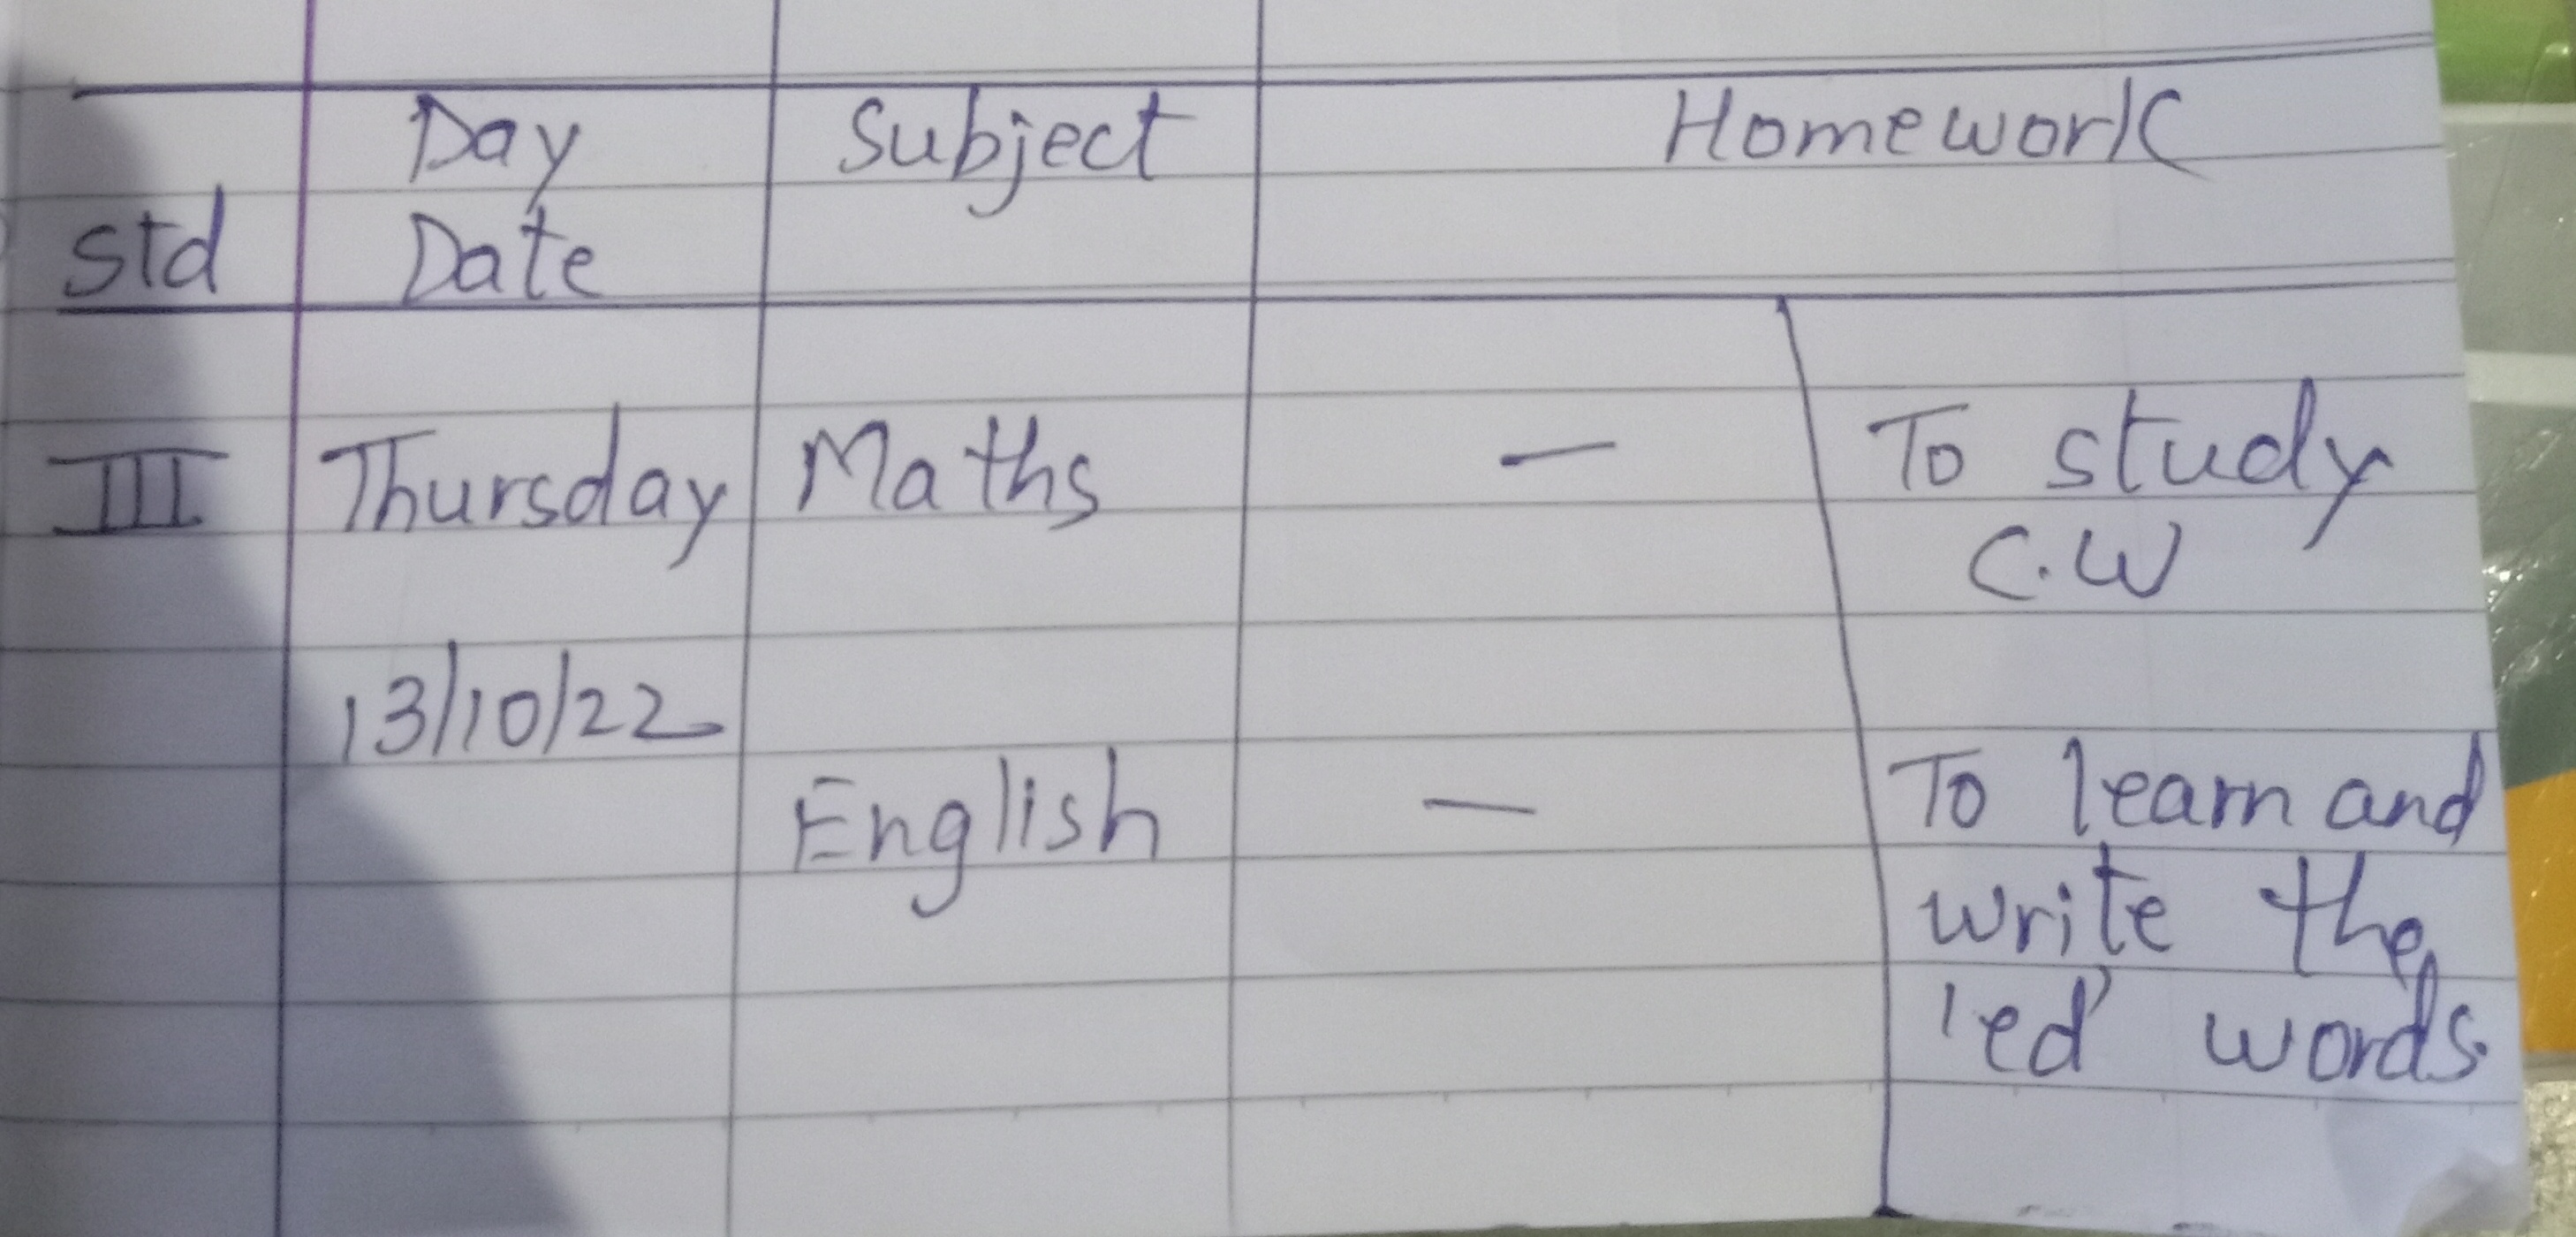 Day Subject Homework
Std Date
III Thursday Maths — To study
C.W
13/10/22
English — To learn and
write the
'ed' words.